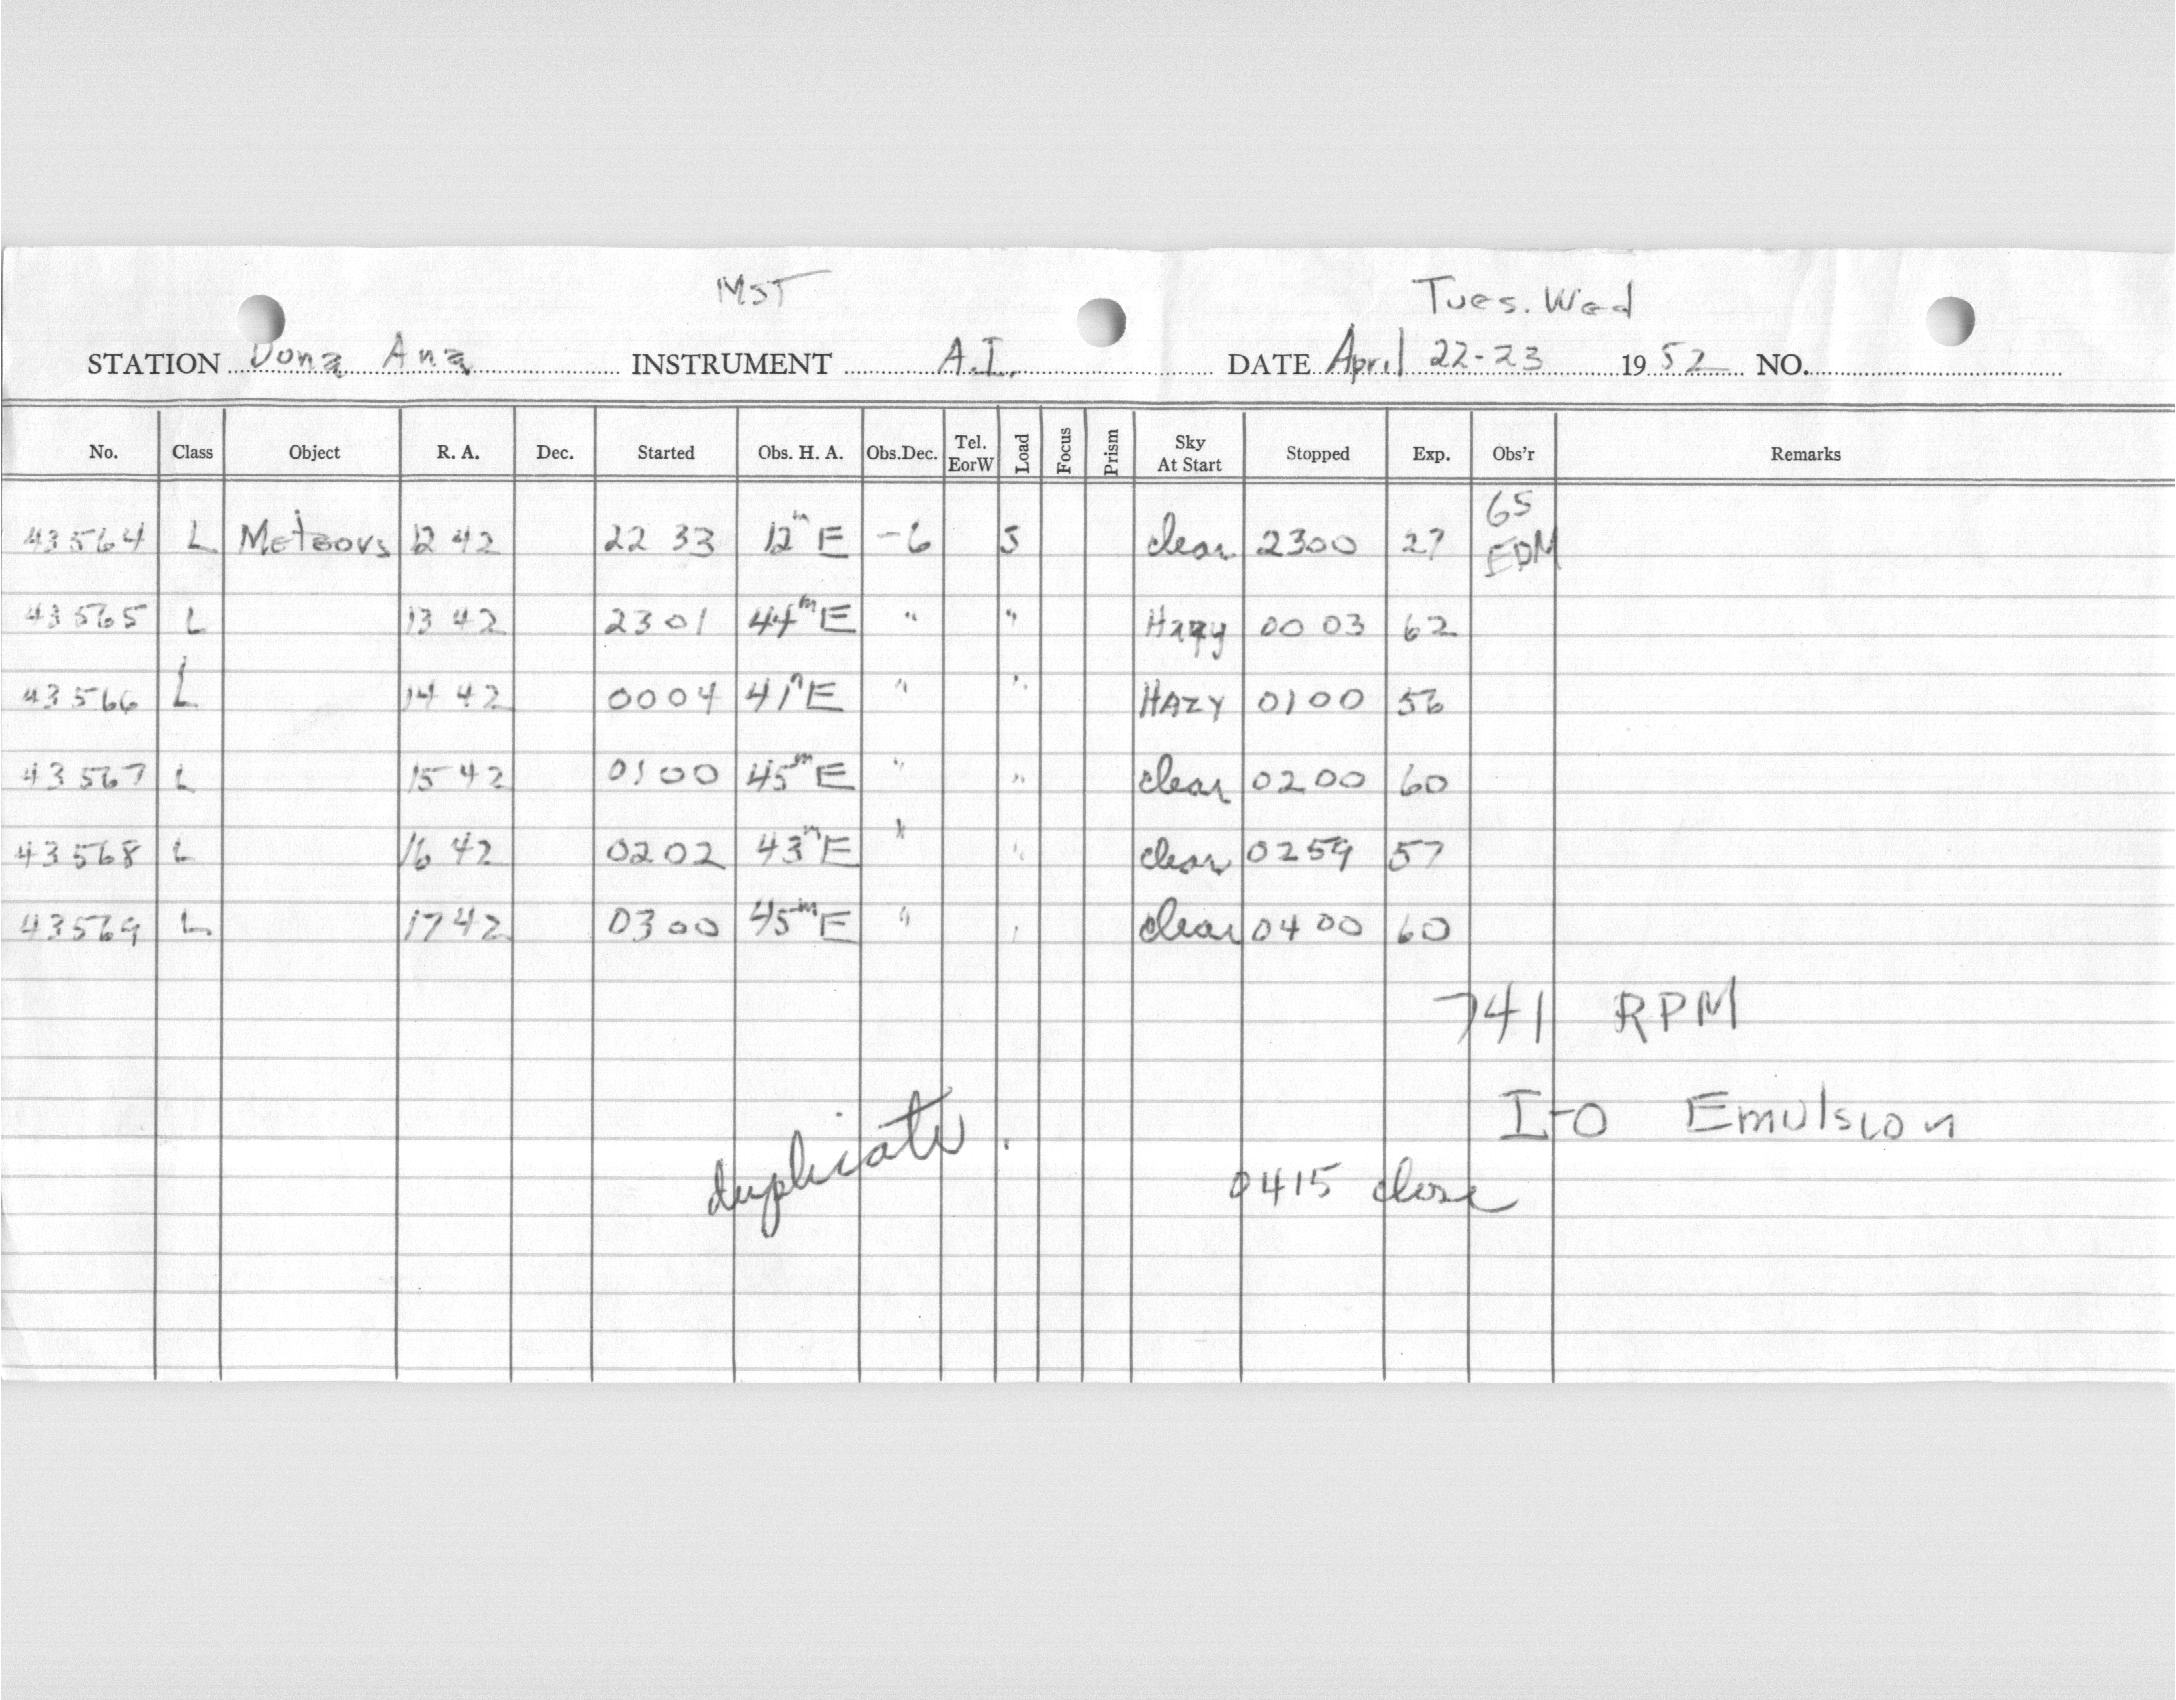 MST
Tues. Wed
STATION Dona Ana INSTRUMENT A.I. DATE April 22-23 1952 NO.
No. Class Object R. A. Dec. Started Obs. H. A. Obs.Dec. Tel. EorW Load Focus Prism Sky At Start Stopped Exp. Obs'r Remarks
65
43564 L Meteors 12 42 22 33 12m E -6 5 clear 2300 27 EDM
43565 L 13 42 2301 44m E " " Hazy 00 03 62
43566 L 14 42 0004 41m E " " HAZY 0100 56
43567 L 15 42 0100 45m E " " clear 0200 60
43568 L 16 42 0202 43m E " " clear 0259 57
43569 L 17 42 0300 45m E " clear 0400 60
741 RPM
I-O Emulsion
duplicate.
0415 close